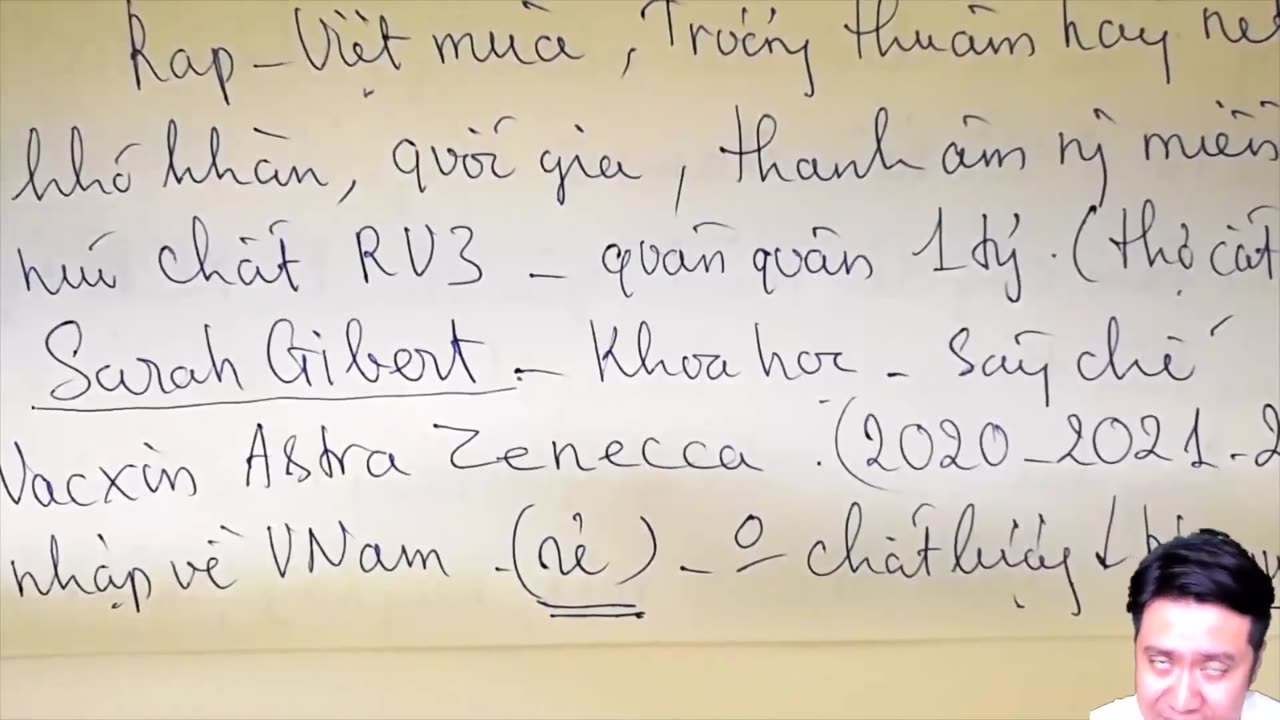 Rap - Việt mùa, Trường thuầm hay
khó khăn, quốc gia, thanh âm miền
chất RV3 - quán quân 1 tỷ. (thợ cắt
Sarah Gibert - Khoa hoc - Sáng chế
Vacxin Astra Zenecca. (2020 - 2021 - 2
nhập về VNam - (rẻ) - chất lượng ↓